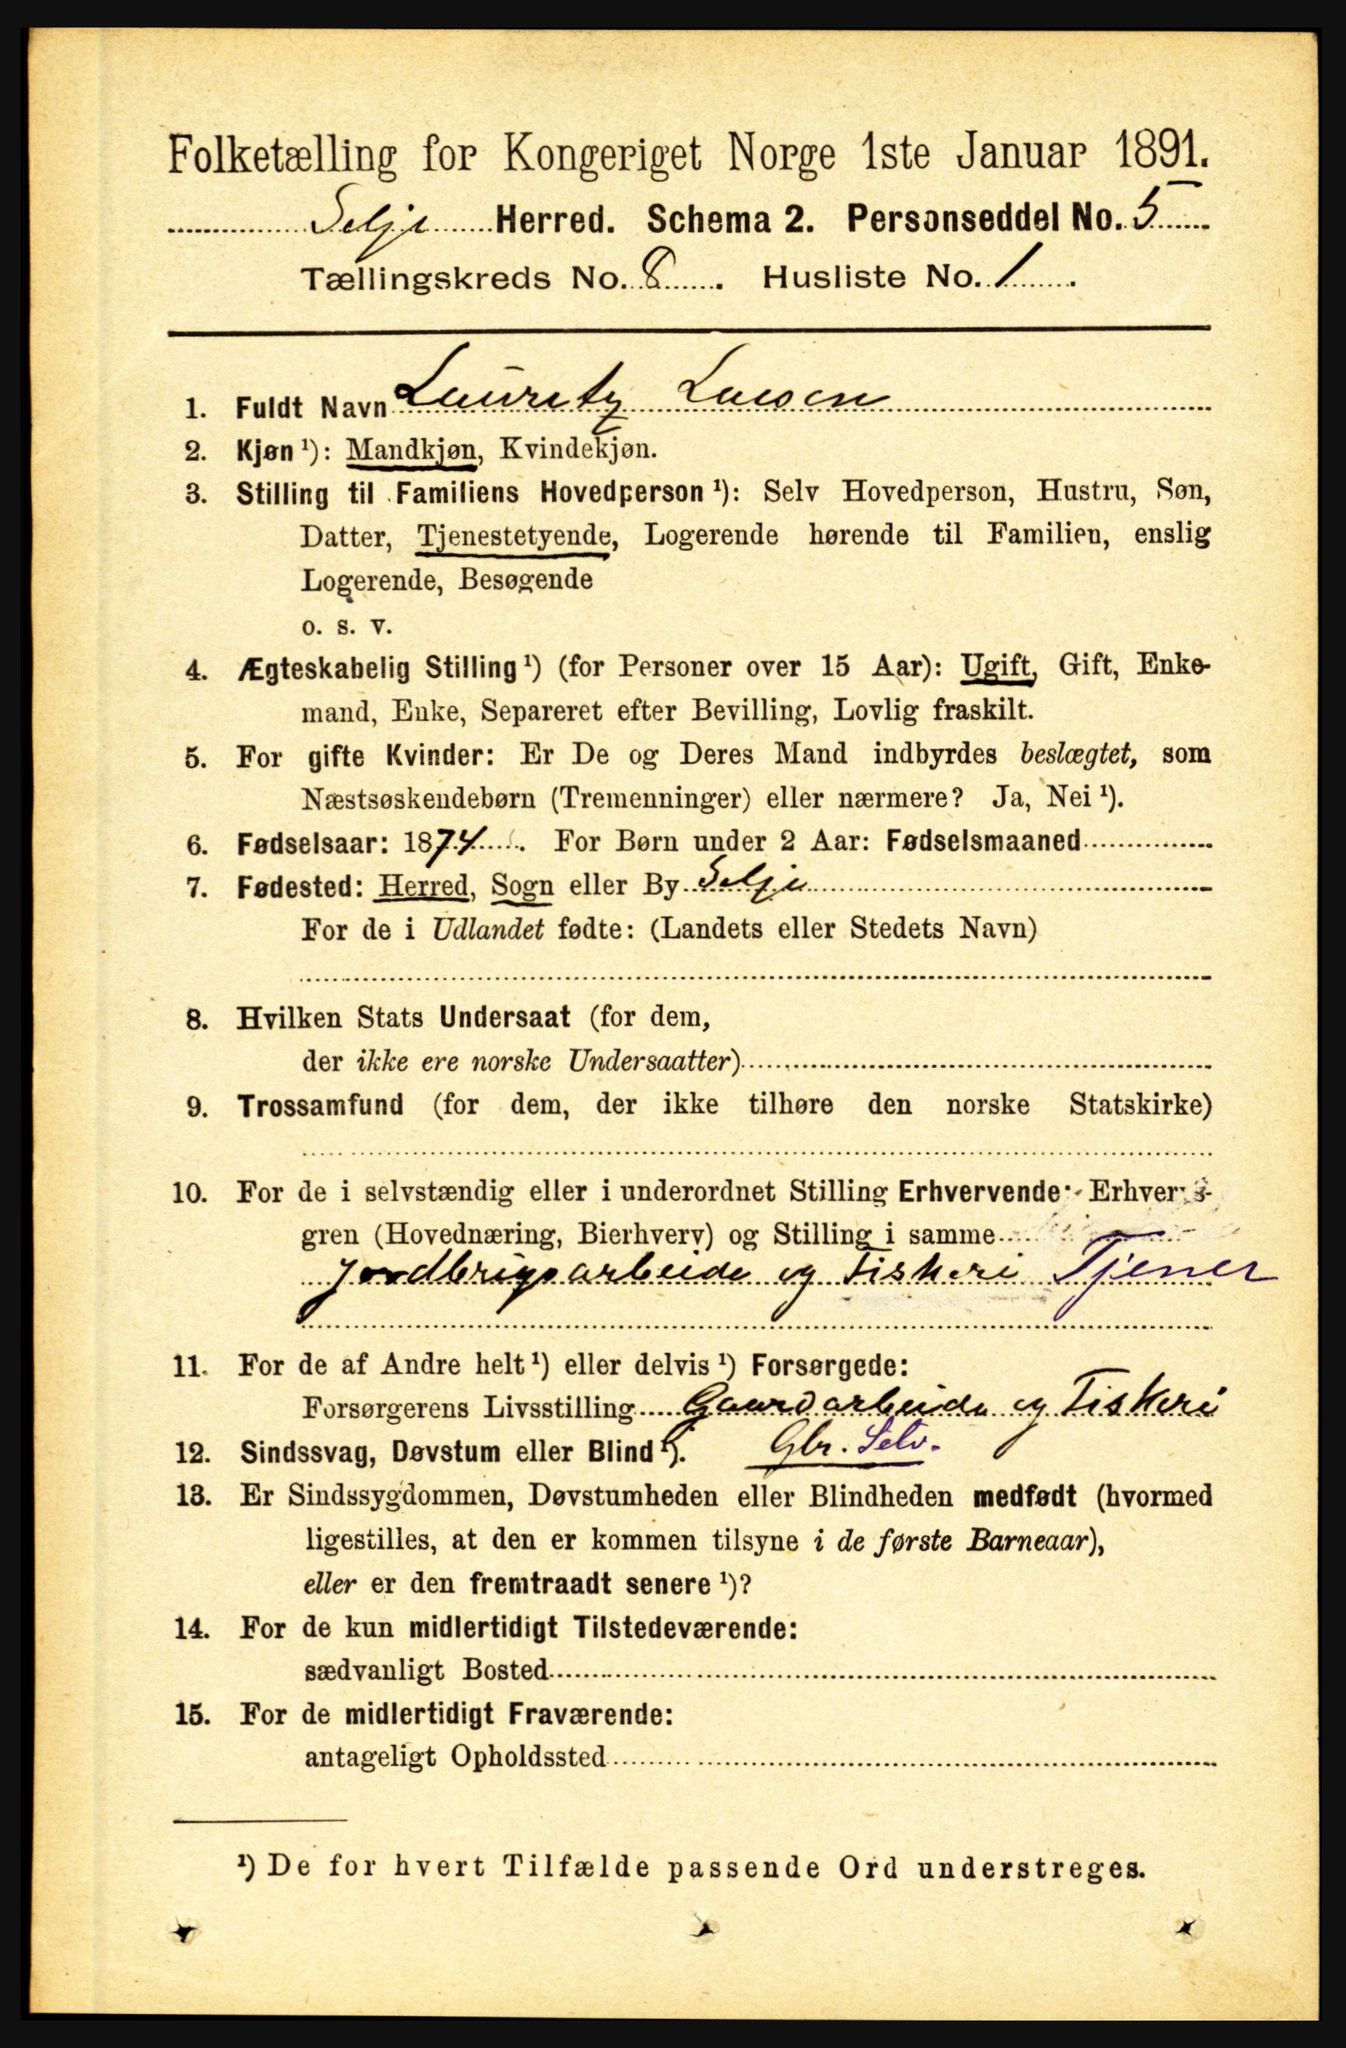 Folketælling for Kongeriget Norge 1ste Januar 1891.
Selje Herred. Schema 2. Personseddel No. 5
Tællingskreds No. 8. Husliste No. 1.
1. Fuldt Navn Lauritz Larsen
2. Kjøn ¹): Mandkjøn, Kvindekjøn.
3. Stilling til Familiens Hovedperson ¹): Selv Hovedperson, Hustru, Søn,
Datter, Tjenestetyende, Logerende hørende til Familien, enslig
Logerende, Besøgende
o. s. v.
4. Ægteskabelig Stilling ¹) (for Personer over 15 Aar): Ugift, Gift, Enke-
mand, Enke, Separeret efter Bevilling, Lovlig fraskilt.
5. For gifte Kvinder: Er De og Deres Mand indbyrdes beslægtet, som
Næstsøskendebørn (Tremenninger) eller nærmere? Ja, Nei ¹).
6. Fødselsaar: 1874. For Børn under 2 Aar: Fødselsmaaned
7. Fødested: Herred, Sogn eller By Selje
For de i Udlandet fødte: (Landets eller Stedets Navn)
8. Hvilken Stats Undersaat (for dem,
der ikke ere norske Undersaatter)
9. Trossamfund (for dem, der ikke tilhøre den norske Statskirke)
10. For de i selvstændig eller i underordnet Stilling Erhvervende: Erhvervs-
gren (Hovednæring, Bierhverv) og Stilling i samme
Jordbrugsarbeide og Fiskeri Tjener
11. For de af Andre helt ¹) eller delvis ¹) Forsørgede:
Forsørgerens Livsstilling Gaardarbeide og Fiskeri
12. Sindssvag, Døvstum eller Blind ¹). Gbr. Selv.
13. Er Sindssygdommen, Døvstumheden eller Blindheden medfødt (hvormed
ligestilles, at den er kommen tilsyne i de første Barneaar),
eller er den fremtraadt senere ¹)?
14. For de kun midlertidigt Tilstedeværende:
sædvanligt Bosted
15. For de midlertidigt Fraværende:
antageligt Opholdssted
¹) De for hvert Tilfælde passende Ord understreges.